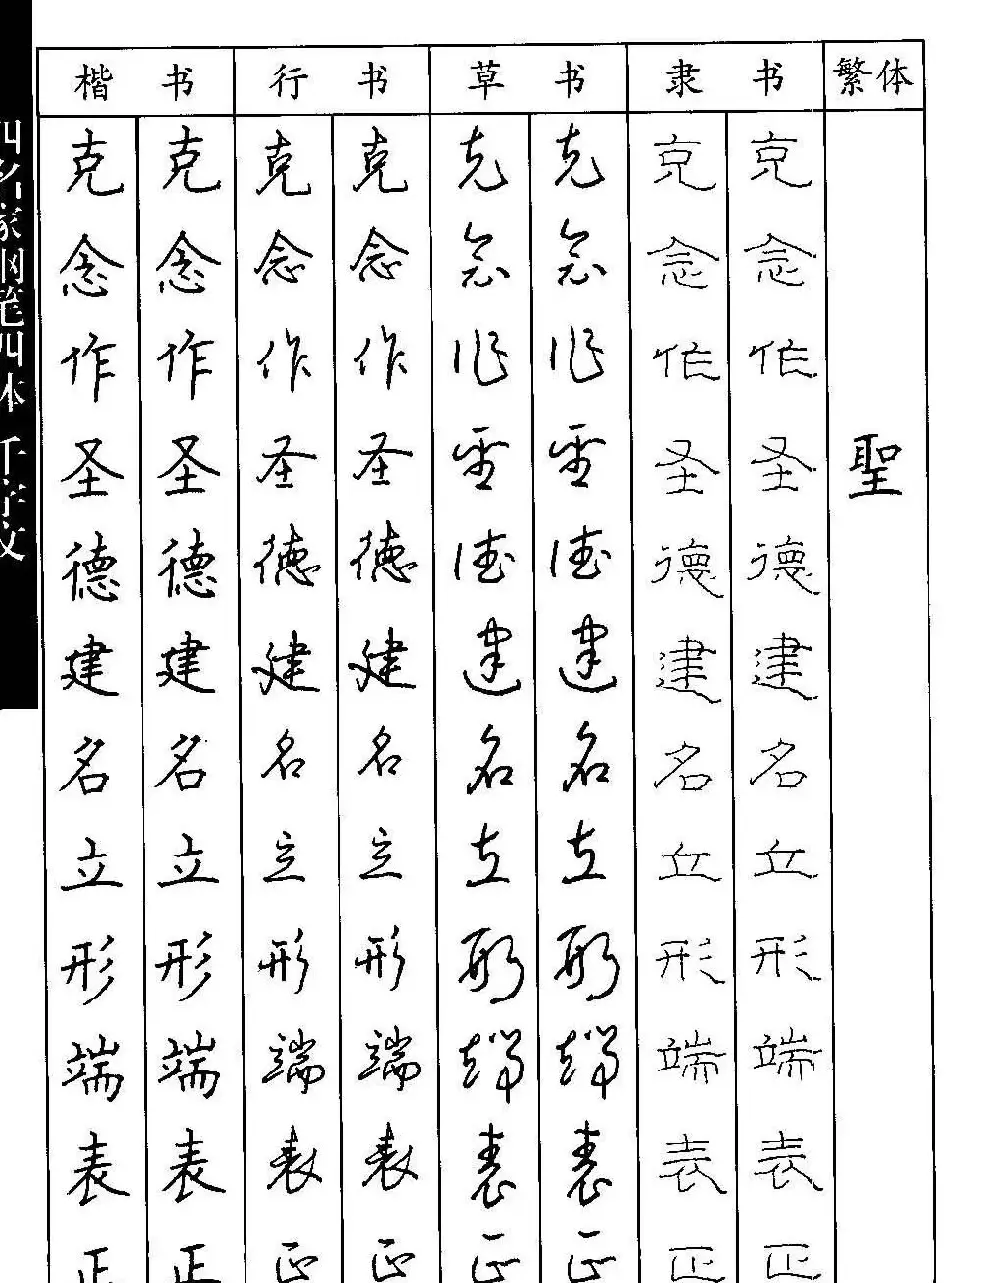 四名家钢笔四体 千字文
楷书 行书 草书 隶书 繁体
克 克 克 克 克 克 克 克
念 念 念 念 念 念 念 念
作 作 作 作 作 作 作 作
圣 圣 圣 圣 圣 圣 圣 圣 聖
德 德 德 德 德 德 德 德
建 建 建 建 建 建 建 建
名 名 名 名 名 名 名 名
立 立 立 立 立 立 立 立
形 形 形 形 形 形 形 形
端 端 端 端 端 端 端 端
表 表 表 表 表 表 表 表
正 正 正 正 正 正 正 正